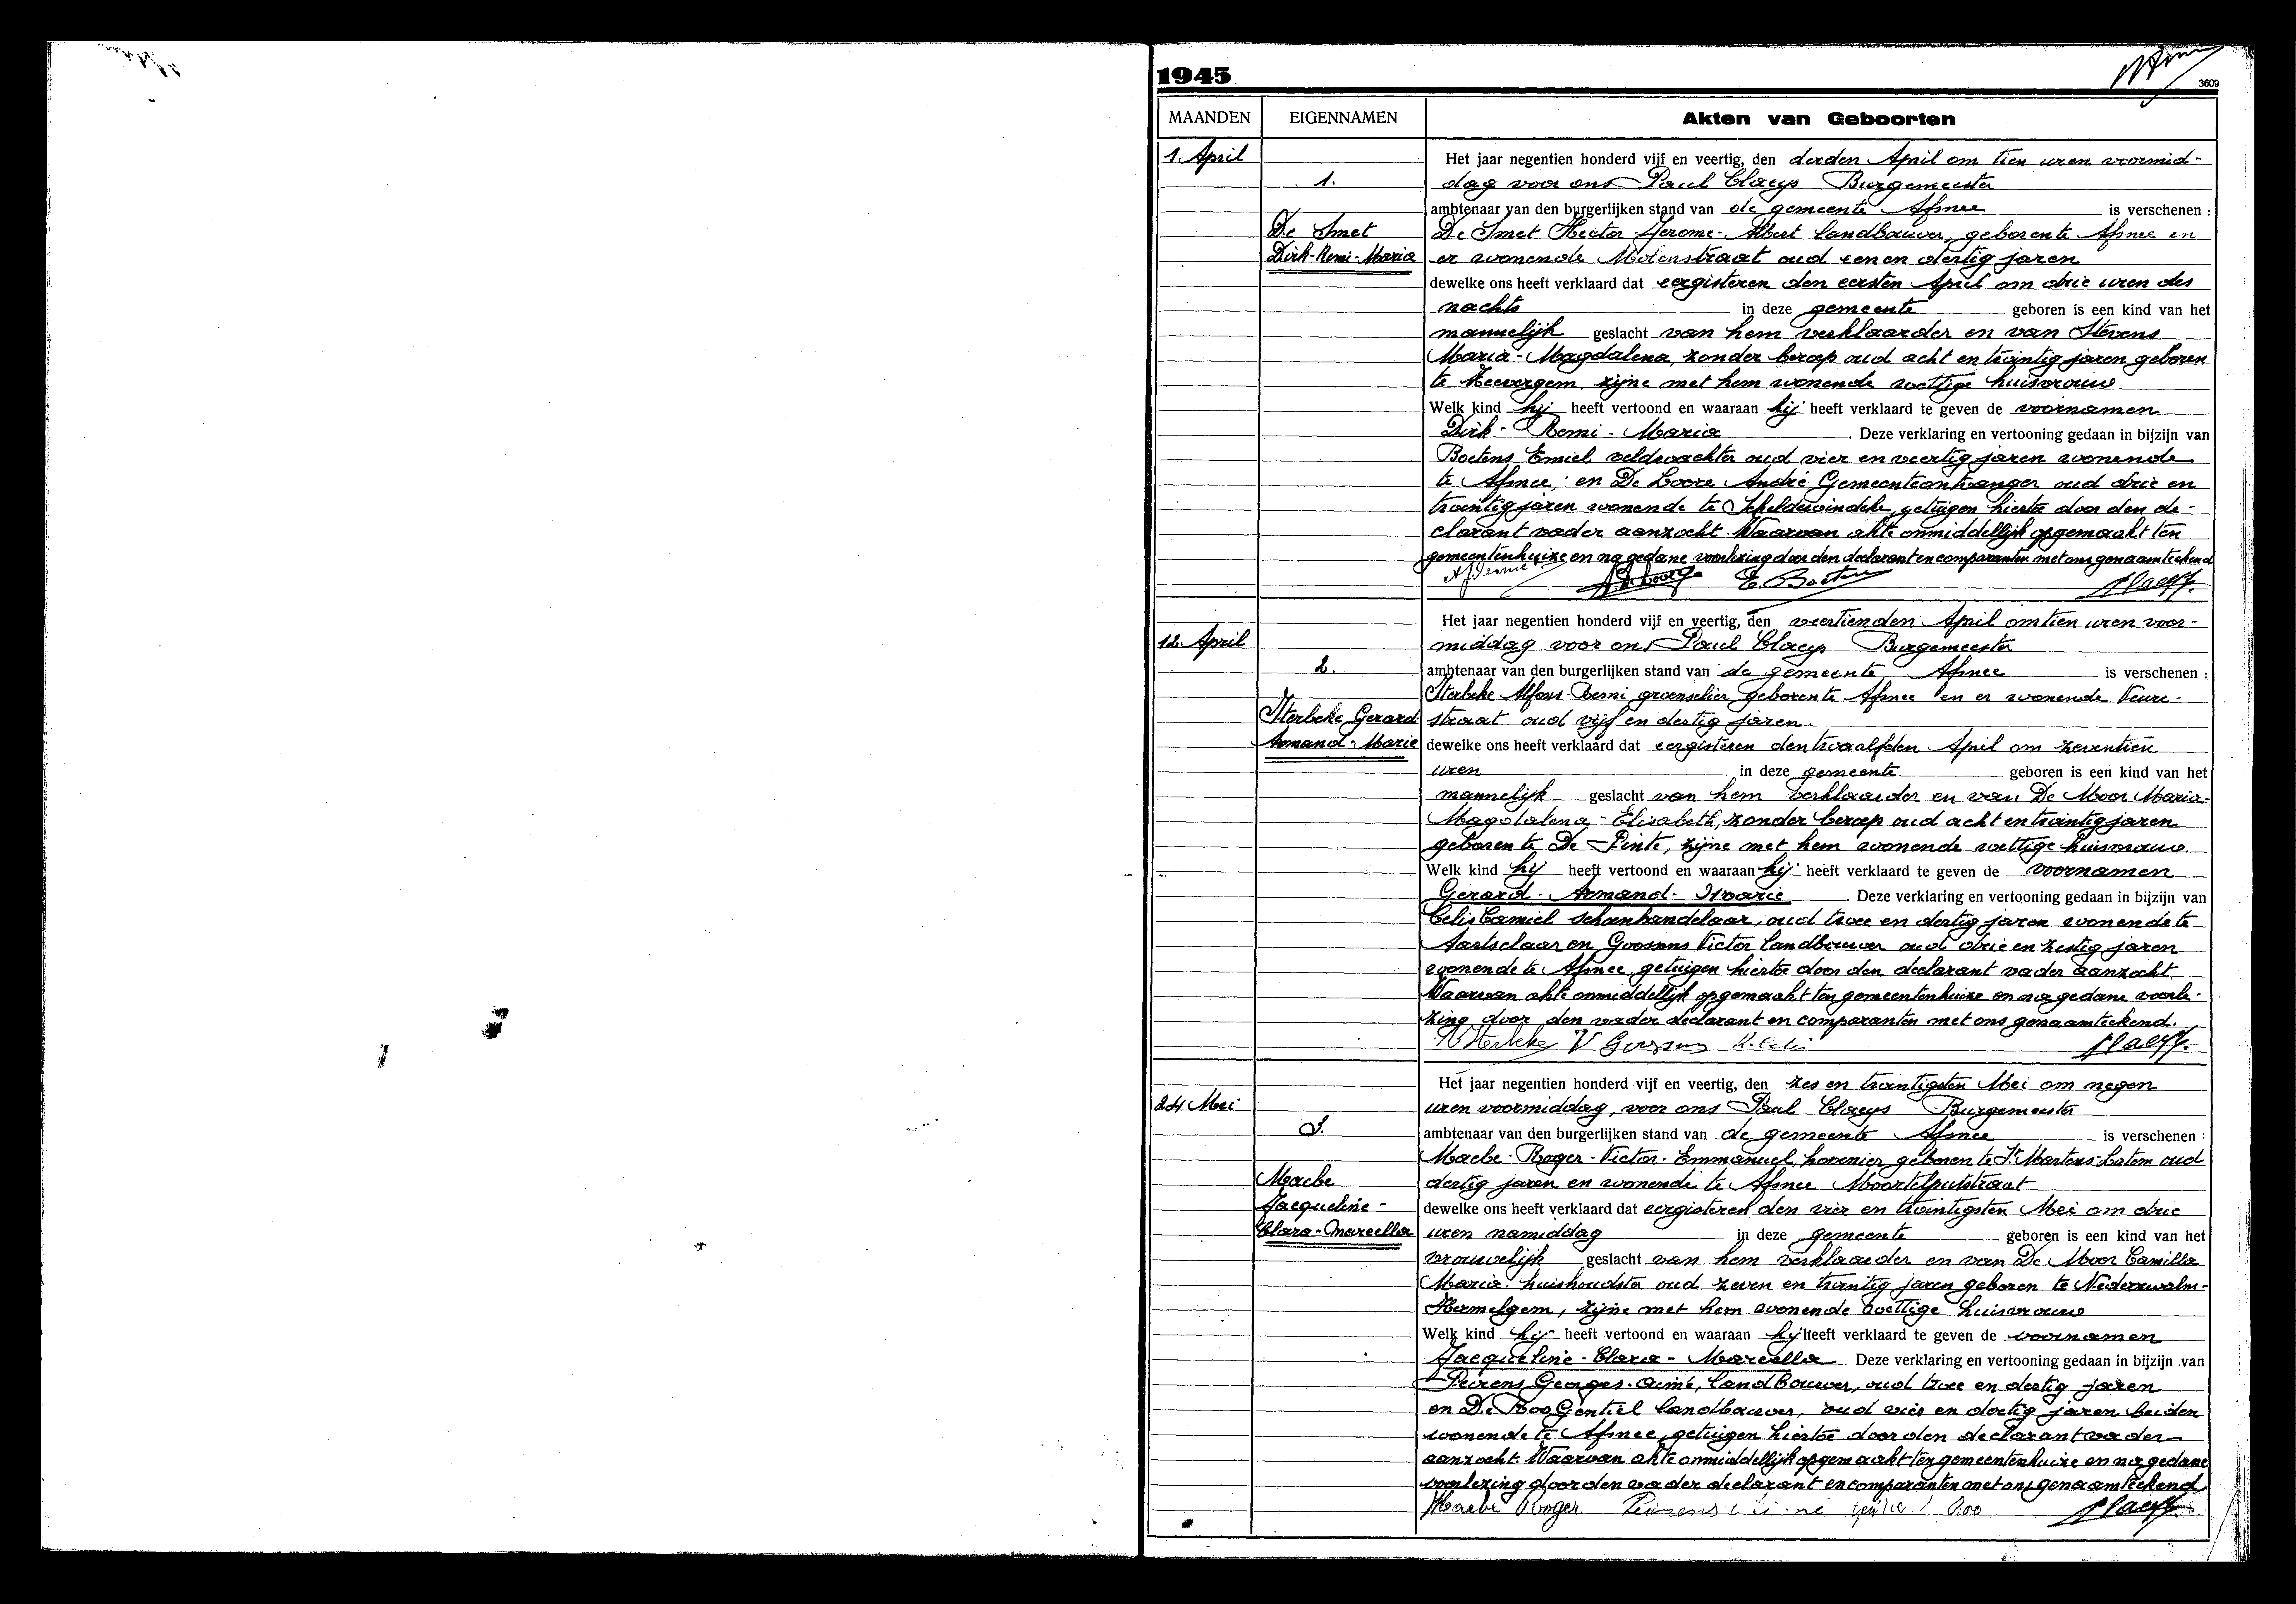 1945
3609
MAANDEN EIGENNAMEN Akten van Geboorten
1. April
1.
De Smet
Dirk-Remi-Maria
Het jaar negentien honderd vijf en veertig, den derden April om tien uren voormid-
dag voor ons Paul Claeys Burgemeester
ambtenaar van den burgerlijken stand van de gemeente Afsnee is verschenen :
De Smet Hector-Jerome-Albert landbouwer, geboren te Afsnee en
er wonende Molenstraat oud eenen dertig jaren
dewelke ons heeft verklaard dat eergisteren den eersten April om drie uren des
nachts in deze gemeente geboren is een kind van het
mannelijk geslacht van hem verklaarder en van Stevens
Maria-Magdalena, zonder beroep oud acht en twintig jaren geboren
te Zevergem, zijne met hem wonende wettige huisvrouw
Welk kind hij heeft vertoond en waaraan hij heeft verklaard te geven de voornamen
Dirk-Remi-Maria. Deze verklaring en vertooning gedaan in bijzijn van
Boetens Emiel veldwachter oud vier en veertig jaren wonende
te Afsnee; en De Loore André Gemeenteontvanger oud drie en
twintig jaren wonende te Scheldewindeke, getuigen hiertoe door den de-
clarant vader aanzocht. Waarvan akte onmiddellijk opgemaakt ten
gemeentenhuize en na gedane voorlezing door den declarant en comparanten met ons genaamteekend
E. Boetens
12 April
2.
Sterbeke Gerard
Armand-Marie
Het jaar negentien honderd vijf en veertig, den veertienden April om tien uren voor-
middag voor ons Paul Claeys Burgemeester
ambtenaar van den burgerlijken stand van de gemeente Afsnee is verschenen :
Sterbeke Alfons-Remi groenselier geboren te Afsnee en er wonende Veure-
straat oud vijf en dertig jaren.
dewelke ons heeft verklaard dat eergisteren den twaalfden April om zeventien
uren in deze gemeente geboren is een kind van het
mannelijk geslacht van hem verklaarder en van De Moor Maria-
Magdalena-Elisabeth, zonder beroep oud acht en twintig jaren
geboren te De Pinte, zijne met hem wonende wettige huisvrouw.
Welk kind hij heeft vertoond en waaraan hij heeft verklaard te geven de voornamen
Gerard-Armand-Marie. Deze verklaring en vertooning gedaan in bijzijn van
Celis Camiel schoenhandelaar, oud twee en dertig jaren wonende te
Aartselaar en Goossens Victor landbouwer oud drie en zestig jaren
wonende te Afsnee, getuigen hiertoe door den declarant vader aanzocht.
Waarvan akte onmiddellijk opgemaakt ten gemeentenhuize en na gedane voorle-
zing door den vader declarant en comparanten met ons genaamteekend.
Sterbeke V Goossens K. Celis
24 Mei
3.
Maebe
Jacqueline-
Clara-Marcella
Het jaar negentien honderd vijf en veertig, den zes en twintigsten Mei om negen
uren voormiddag, voor ons Paul Claeys Burgemeester
ambtenaar van den burgerlijken stand van de gemeente Afsnee is verschenen :
Maebe-Roger-Victor-Emmanuel, hovenier geboren te St Martens-Latem oud
dertig jaren en wonende te Afsnee Moortelputstraat
dewelke ons heeft verklaard dat eergisteren den vier en twintigsten Mei om drie
uren namiddag in deze gemeente geboren is een kind van het
vrouwelijk geslacht van hem verklaarder en van De Moor Camilla
Maria, huishoudster oud zeven en twintig jaren geboren te Nederzwalm-
Hermelgem, zijne met hem wonende wettige huisvrouw
Welk kind hij heeft vertoond en waaraan hij heeft verklaard te geven de voornamen
Jacqueline-Clara-Marcella. Deze verklaring en vertooning gedaan in bijzijn van
Peirens Georges-Aimé, landbouwer, oud twee en dertig jaren
en De Roo Gentiel landbouwer, oud vier en dertig jaren beiden
wonende te Afsnee, getuigen hiertoe door den declarant vader
aanzocht. Waarvan akte onmiddellijk opgemaakt ten gemeentenhuize en na gedane
voorlezing door den vader declarant en comparanten met ons genaamteekend.
Maebe Roger Peirens